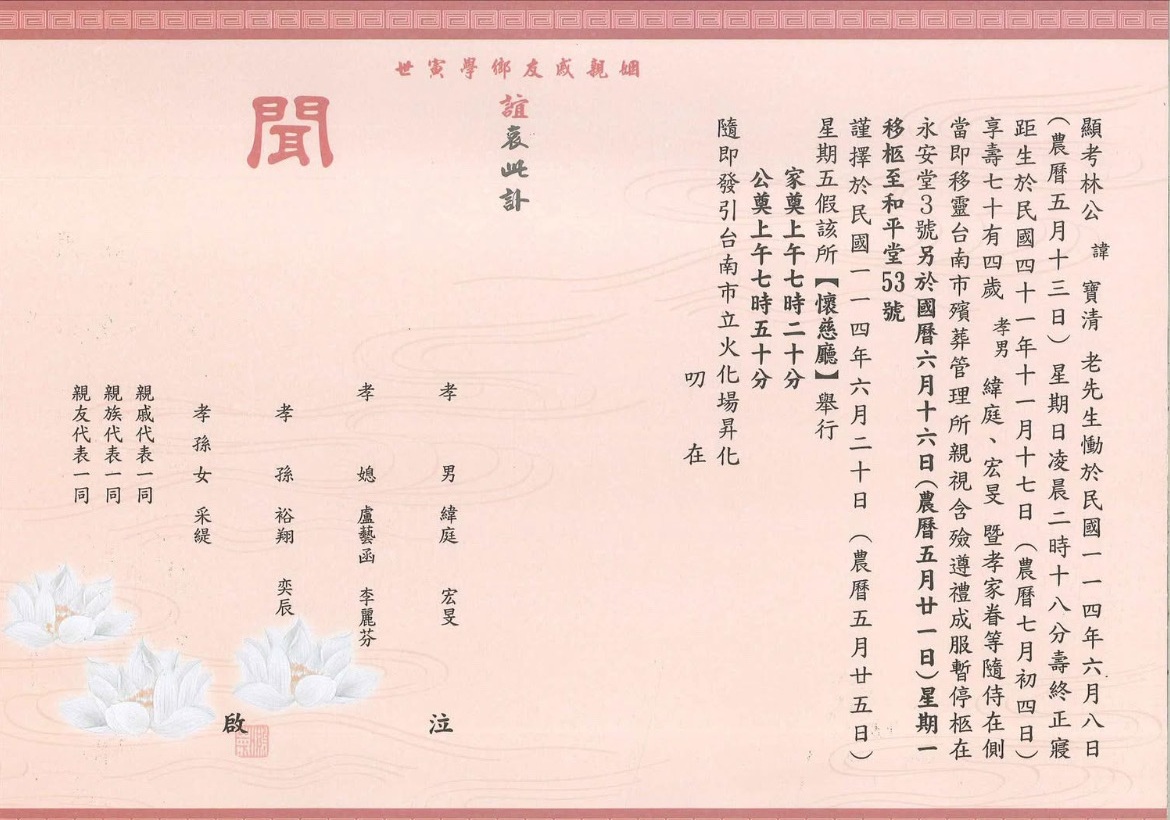 顯考林公 諱 寶清 老先生慟於民國一一四年六月八日
(農曆五月十三日)星期日凌晨二時十八分壽終正寢
距生於民國四十一年十一月十七日(農曆七月初四日)
享壽七十有四歲 孝男 緯庭、宏旻 暨孝家眷等隨侍在側
當即移靈台南市殯葬管理所親視含殮遵禮成服暫停柩在
永安堂3號另於國曆六月十六日(農曆五月廿一日)星期一
移柩至和平堂53號
謹擇於民國一一四年六月二十日(農曆五月廿五日)
星期五假該所【懷慈廳】舉行
家奠上午七時二十分
公奠上午七時五十分
隨即發引台南市立火化場昇化
叨在
姻親戚友鄉學寅世
誼哀此訃
聞
孝男 緯庭 宏旻
孝媳 盧藝函 李麗芬
泣
孝孫 裕翔 奕辰
孝孫女 采緹
啟
親戚代表一同
親族代表一同
親友代表一同